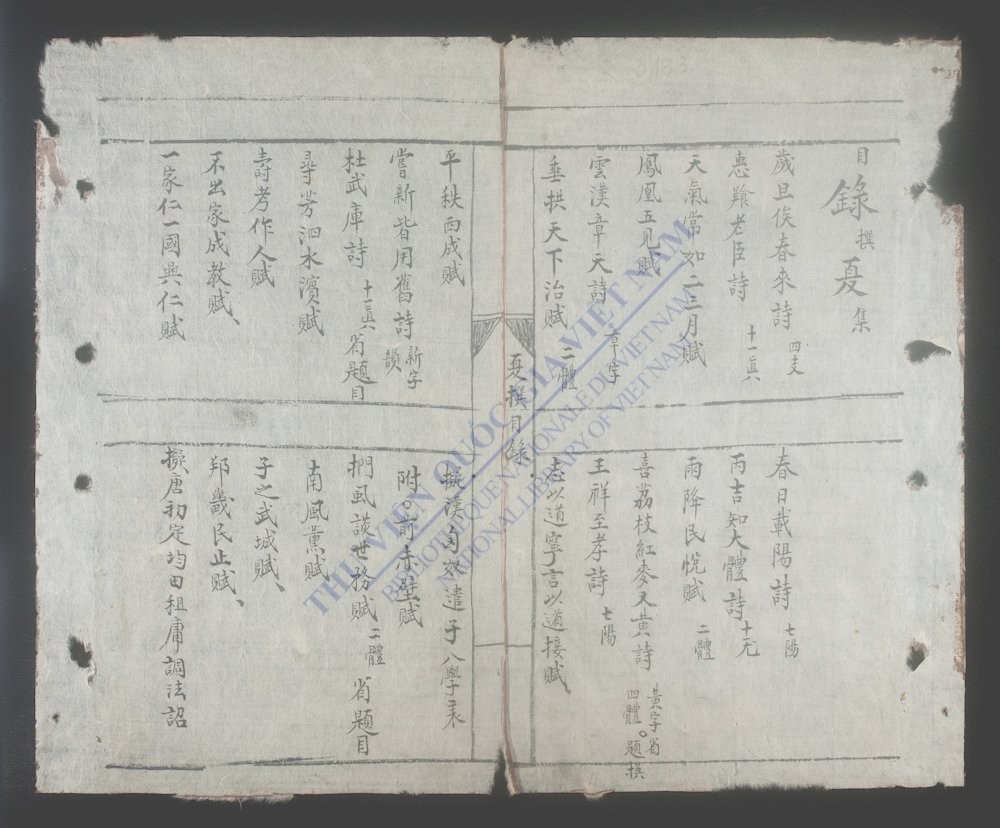 目錄撰夏集
歲旦俟春來詩 四支
惠養老臣詩 十一真
天氣常如二三月賦
鳳凰五見賦
雲漢章天詩 章字
垂拱天下治賦 二體
春日載陽詩 七陽
丙吉知大體詩
雨降民悅賦 二體
喜荔枝紅麥又黃詩 黃字省四體。題撰
王祥至孝詩 七陽
志以道寧言以道接賦、
夏撰目錄
平秩西成賦
嘗新皆用舊詩 新字韻
杜武庫詩 十一真 省題目
尋芳泗水濱賦
壽考作人賦
不出家成教賦、
一家仁一國興仁賦
擬漢匈奴遣子入學表
附。前赤壁賦
捫虱談世務賦 二體 省題目
南風薰賦
子之武城賦、
邦畿民止賦、
擬唐初定均田租庸調法詔
THƯ VIỆN QUỐC GIA VIỆT NAM
BIBLIOTHEQUE NATIONALE DU VIETNAM
NATIONAL LIBRARY OF VIETNAM